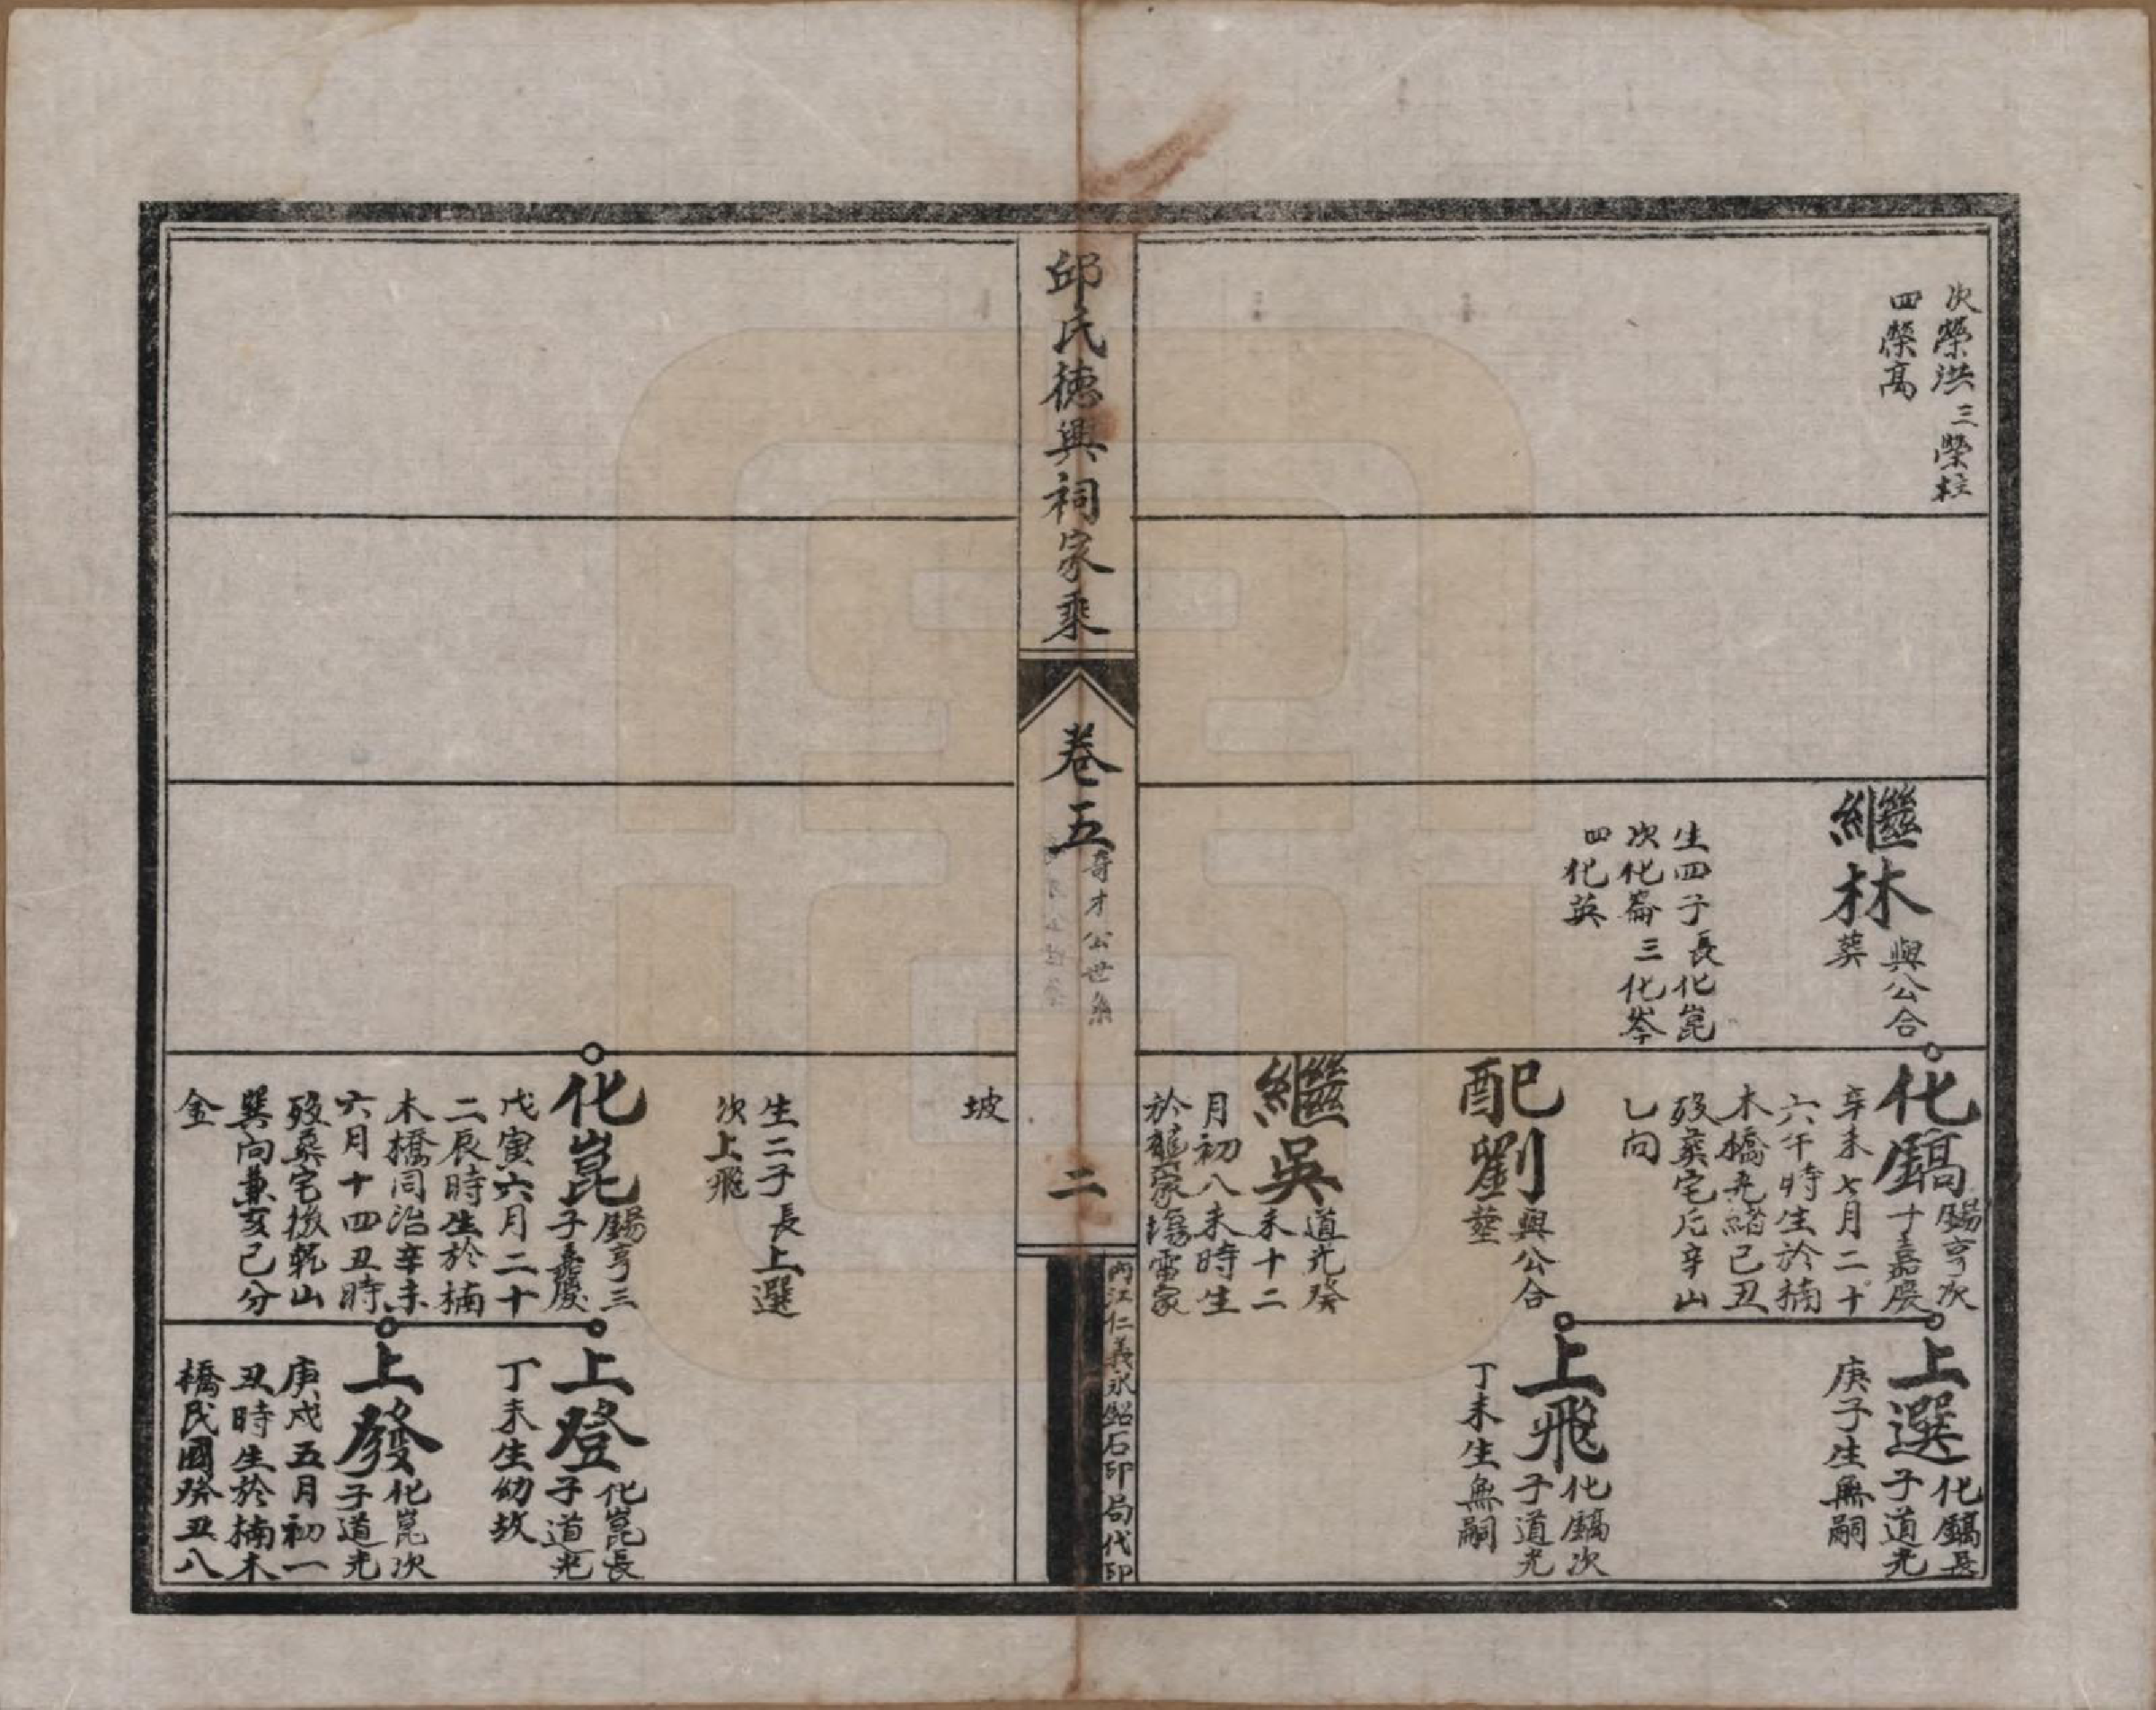 次榮洪三榮柱
四榮高
繼林與公合
葬
生四子長化崑
次化崙三化岑
四化英
化鎬錫亨次
子嘉慶
辛未七月二十
六午時生於楠
木橋光緒己丑
歿葬宅后辛山
乙向
配劉與公合
塟
繼吳道光癸
未十二
月初八未時生
於龍家塲雷家
上選化鎬長
子道光
庚子生無嗣
上飛化鎬次
子道光
丁未生無嗣
邱氏德興祠家乘
卷五
奇才公世系
二
內江仁義永紹石印局代印
坡
生二子長上選
次上飛
化崑錫亨三
子嘉慶
戊寅六月二十
二辰時生於楠
木橋同治辛未
六月十四丑時
歿葬宅後乾山
巽向兼亥巳分
金
上登化崑長
子道光
丁未生幼故
上發化崑次
子道光
庚戌五月初一
丑時生於楠木
橋民國癸丑八